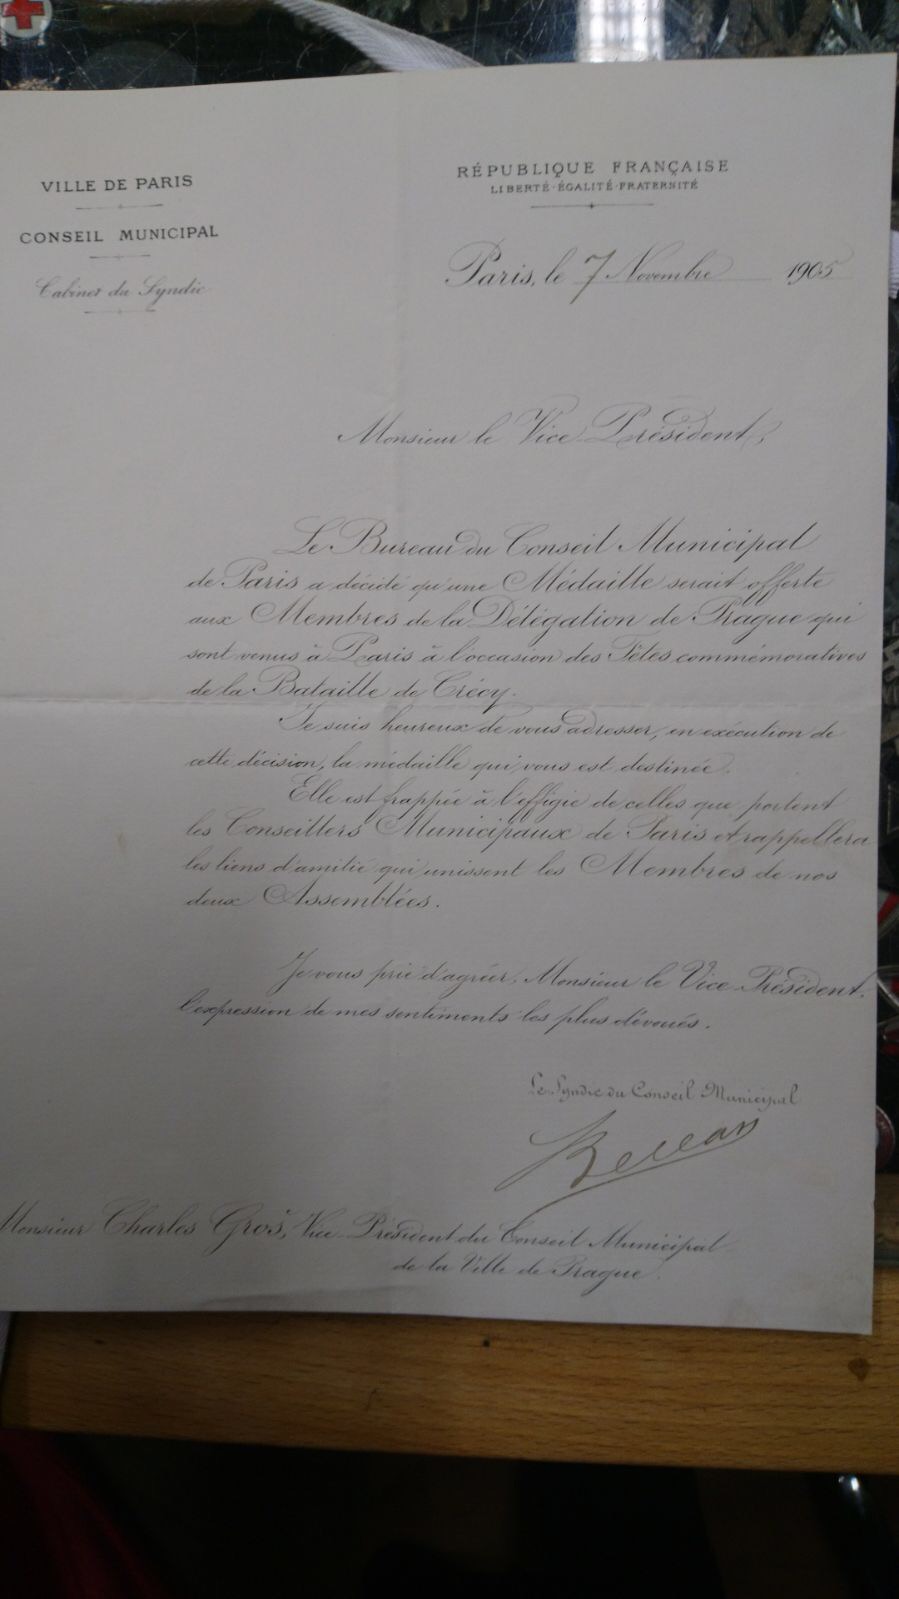 VILLE DE PARIS
CONSEIL MUNICIPAL
Cabinet du Syndic
RÉPUBLIQUE FRANÇAISE
LIBERTÉ·ÉGALITÉ·FRATERNITÉ
Paris, le 7 Novembre 1905
Monsieur le Vice-Président,
Le Bureau du Conseil Municipal
de Paris a décidé qu'une Médaille serait offerte
aux Membres de la Délégation de Prague qui
sont venus à Paris à l'occasion des Fêtes commémoratives
de la Bataille de Crécy.
Je suis heureux de vous adresser, en exécution de
cette décision, la médaille qui vous est destinée.
Elle est frappée à l'effigie de celles que portent
les Conseillers Municipaux de Paris et rappellera
les liens d'amitié qui unissent les Membres de nos
deux Assemblées.
Je vous prie d'agréer, Monsieur le Vice-Président,
l'expression de mes sentiments les plus dévoués.
Le Syndic du Conseil Municipal
Monsieur Charles Groš, Vice-Président du Conseil Municipal
de la Ville de Prague.